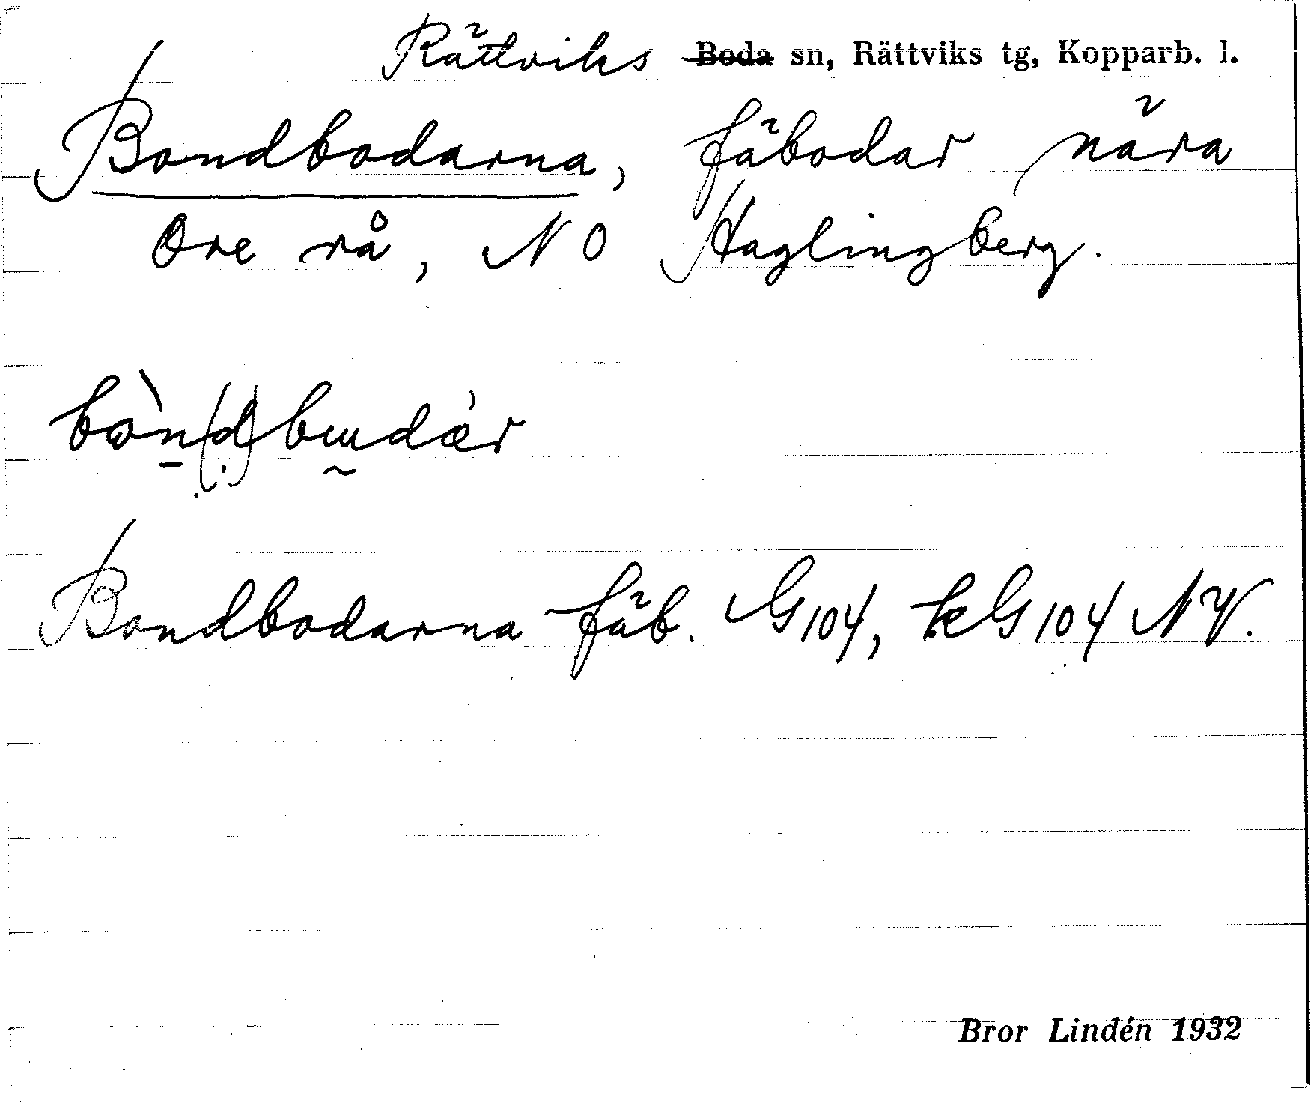 Rättviks Boda sn, Rättviks tg, Kopparb. l.
Bondbodarna, fäbodar nära
Ore rå, NO Haglingberg.
bòn(d)bɯdǽr
Bondbodarna fäb. G104, kG104 NV.
Bror Lindén 1932